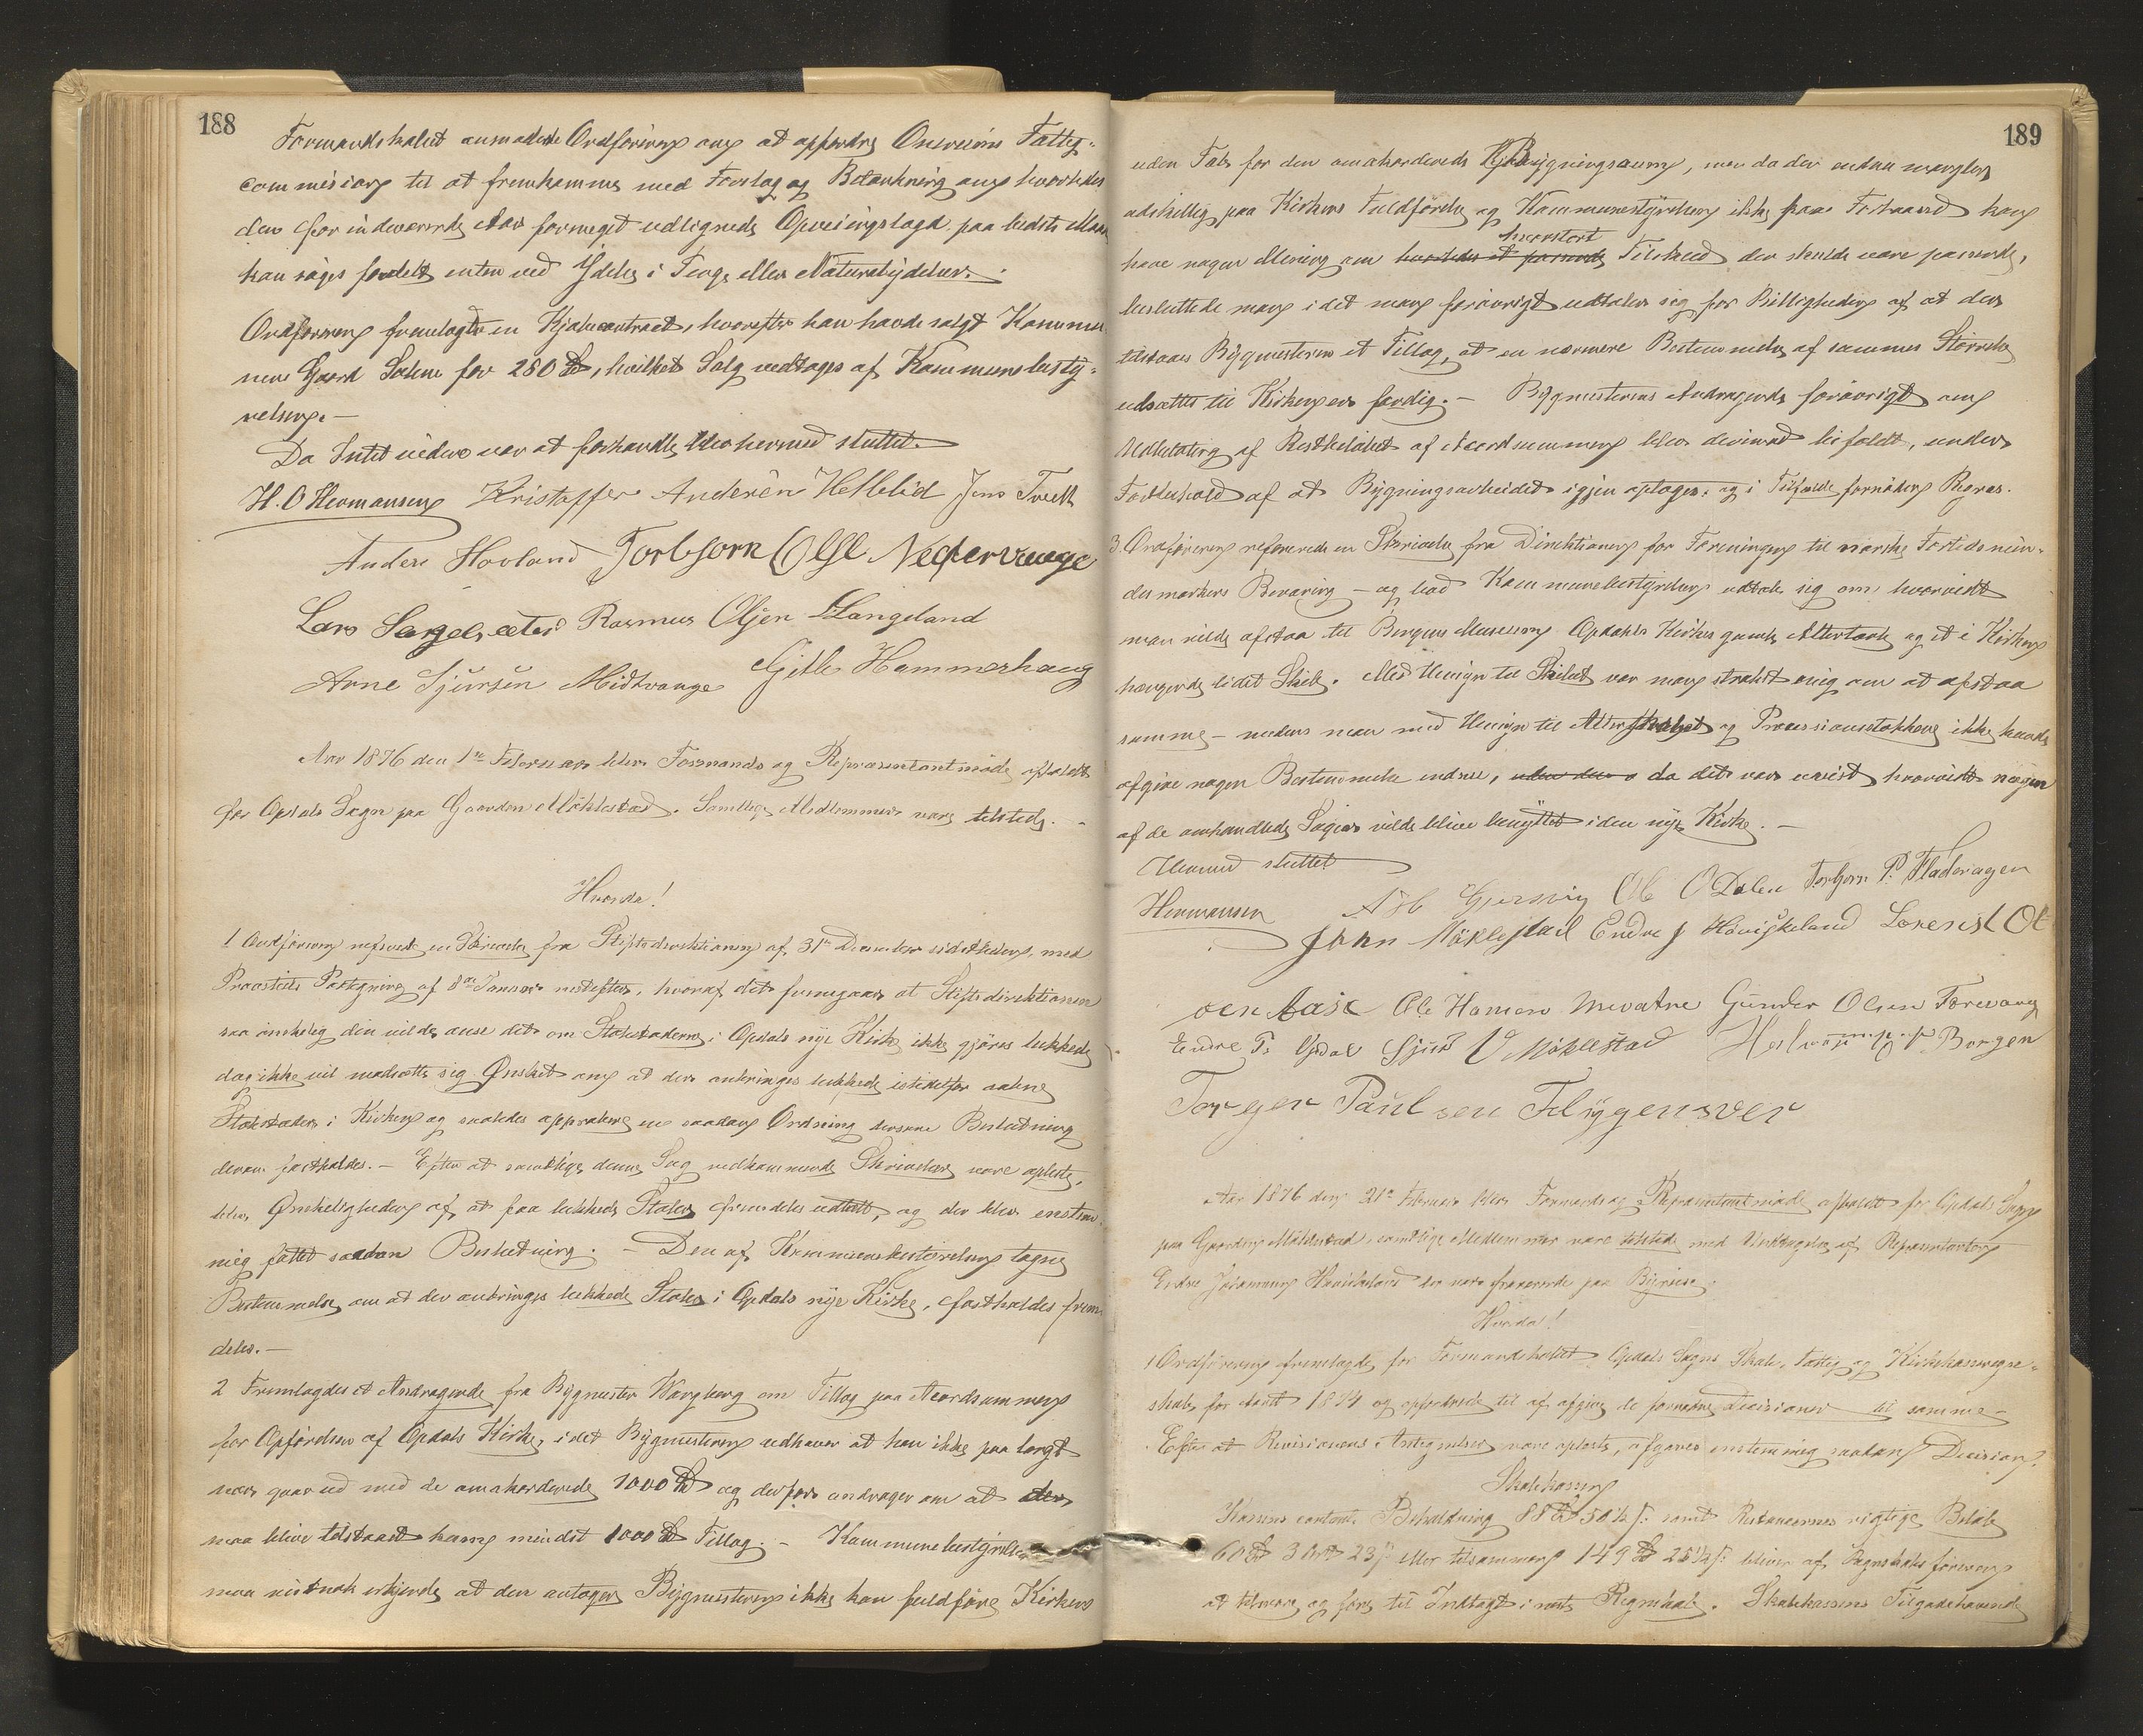 188
Formandskabet anmodede Ordføreren om at opfordre Onereim's Fattig-
commision til at fremkomme med Forslag og Betænkning om hvorledes
den for indeværende Aar formeget udlignede Opveiingslagd paa bedste Maade
kan søges fordelt enten ved Ydelse i Penge eller Naturalydelser.
Ordføreren fremlagde en Kjøbecontract, hvorefter han havde solgt Kommu-
nens Gaard for 280 Spd, hvilket Salg vedtages af Kommunebesty-
relsen. —
Da Intet videre var at forhandle blev hermed sluttet.
H. O Hermansen Kristoffer Andersen Hellelid Jens Tvedt
Anders Hovland Torbjorn Olsl. Nedrevaage
Lars Sengelsæter Rasmus Olsen Langeland
Arne Sjursen Midtvaage Gitle Hammerhaug
Aar 1876 den 1ste Februar blev Formands og Repræsentantmøde afholdt
for Opdals Sogn paa Gaarden Møklestad. Samtlige Medlemmer vare tilstede. -
Hvorda!
1 Ordføreren refererede en Skrivelse fra Stiftsdirektionen af 31te December sidstleden, med
Provstiets Paategning af 8de Januar næstefter, hvoraf det fremgaar at Stiftsdirektionen
saa ønskelig den vilde anse det om Stolestaderne i Opdals nye Kirke ikke gjøres lukkede
dog ikke vil modsætte sig Ønsket om at der anbringes lukkede istedetfor aabne
Stolestader i Kirken og saaledes approbere en saadan Ordning dersom Beslutning
derom fastholdes. — Efter at samtlige denne Sag vedkommende Skrivelser vare oplæste,
blev Ønskeligheden af at faa lukkede Stoler fremdeles udtalt, og der blev enstem-
mig fattet saadan Beslutning. — Den af Kommunebestyrelsen tagne
Bestemmelse om at der anbringes lukkede Stoler i Opdals nye Kirke, fastholdes frem-
deles. —
2 Fremlagdes et Andragende fra Bygmester Wangberg om Tillæg paa Acordsummen
for Opførelsen af Opdals Kirke, idet Bygmesteren udhæver at han ikke paa langt
nær gaar ud med de omakorderede 1000 Spd og derfor andrager om at der
maa blive tilstaaet ham mindst 1000 Spd Tillæg. — Kommunebestyrelsen
maa vistnok erkjende at den antagne Bygmesteren ikke kan fuldføre Kirken
189
uden Tab for den omakorderede Bygningssum, men da der endnu mangler
adskillig paa Kirkens Fuldførelse og Kommunestyrelsen ikke paa Forhaand kan
hvorstort
have nogen Mening om hvorledes et passende Tilskud der skulde være passende,
besluttede man idet man forøvrigt udtaler sig for Billigheden af at der
tilstaaes Bygmesteren et Tillæg, at en nærmere Bestemmelse af sammes Størrelse
udsættes til Kirken er færdig. — Bygmesterens Andragende forøvrigt om
Udbetaling af Restbeløbet af Acordsummen blev derimod bifaldt, under
Forbehold af at Bygningsarbeidet igjen optages, og i Tilfælde fornøden Regres.
3 Ordføreren refererede en Skrivelse fra Direktionen for Foreningen til norske Fortidsmin-
desmerkers Bevaring — og bad Kommunebestyrelsen udtale sig om hvorvidt
man vilde afstaa til Bergens Museum Opdahls Kirkes gamle Altertavle og et i Kirken
hængende lidet Skib. Med Hensyn til Skibet var man strakt enig om at afstaa
samme — medens man med Hensyn til Alterskabet og Processionsstokkene ikke kunde
afgive nogen Bestemmelse endnu, da det var uvist hvorvidt nogen
af de omhandlede Sager vilde blive benyttet i den nye Kirke. —
Hermed sluttet
Hermansen Gjersvig Ole O Dalen Torbjorn P. Fladeragen
John Møklestad Endre J Hövisheland Lorens Ol
sen Aase Ole Hansen Unevatne Gunder Olsen Tørevaag
Endre P. Opdal Sjur Møklestad Borgen
Torger Paulsen Flygensver
Aar 1876 den 21de Februar blev Formands og Repræsentantmøde afholdt for Opdals Sogn
paa Gaarden Møklestad, samtlige Medlemmer vare tilstede med Undtagelse af Repræsentanten
Endre Johannesen Hövisheland der var fraværende paa Byreise.
Hvorda!
1 Ordføreren fremlagde for Formandskabet Opdals Sogns Skole, Fattig og Kirkekasseregn-
skab for Aaret 1874 og opfordrede til at afgive de fornødne Decisioner til samme —
Efter at Revisionens Antegnelser vare oplæste, afgaves enstemmig saadan Decision:
Skolekassen
Kassens contante Beholdning 88 Spd 50½ s. samt Restancernes rigtige Beløb
60 Spd 3 Ort 23 s. eller tilsammen 149 Spd 25½ s. bliver af Regnskabsføreren
at tilsvare og føre til Indtægt i næste Regnskab. Skolekassens Tilgodehavende